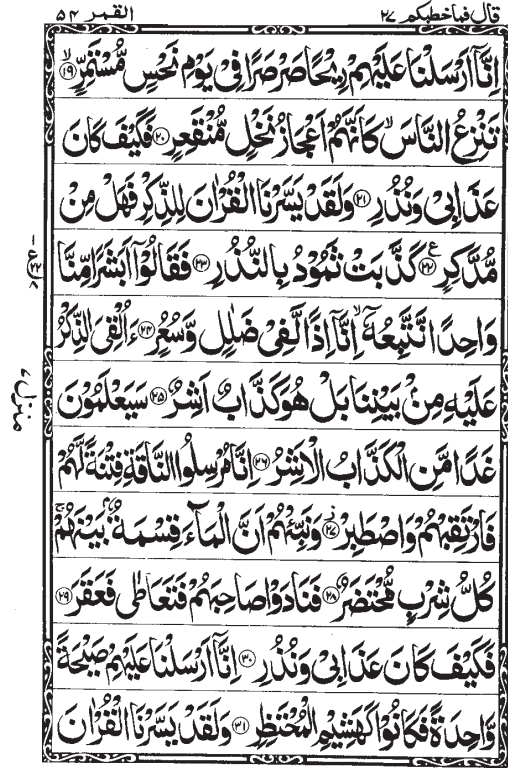 قال فما خطبكم ٢٧ القمر ٥٤
اِنَّاۤ اَرْسَلْنَا عَلَيْهِمْ رِيْحًا صَرْصَرًا فِیْ يَوْمِ نَحْسٍ مُّسْتَمِرٍّ ۙ﴿۱۹﴾
تَنْزِعُ النَّاسَ ۙ كَاَنَّهُمْ اَعْجَازُ نَخْلٍ مُّنْقَعِرٍ ﴿۲۰﴾ فَكَيْفَ كَانَ
عَذَابِیْ وَنُذُرِ ﴿۲۱﴾ وَلَقَدْ يَسَّرْنَا الْقُرْاٰنَ لِلذِّكْرِ فَهَلْ مِنْ
مُّدَّكِرٍ ﴿۲۲﴾ ع كَذَّبَتْ ثَمُوْدُ بِالنُّذُرِ ﴿۲۳﴾ فَقَالُوْۤا اَبَشَرًا مِّنَّا
وَاحِدًا نَّتَّبِعُهٗۤ ۙ اِنَّاۤ اِذًا لَّفِیْ ضَلٰلٍ وَّسُعُرٍ ﴿۲۴﴾ ءَاُلْقِیَ الذِّكْرُ
عَلَيْهِ مِنْۢ بَيْنِنَا بَلْ هُوَ كَذَّابٌ اَشِرٌ ﴿۲۵﴾ سَيَعْلَمُوْنَ
غَدًا مَّنِ الْكَذَّابُ الْاَشِرُ ﴿۲۶﴾ اِنَّا مُرْسِلُوا النَّاقَةِ فِتْنَةً لَّهُمْ
فَارْتَقِبْهُمْ وَاصْطَبِرْ ۫﴿۲۷﴾ وَنَبِّئْهُمْ اَنَّ الْمَآءَ قِسْمَةٌۢ بَيْنَهُمْ ۚ
كُلُّ شِرْبٍ مُّحْتَضَرٌ ﴿۲۸﴾ فَنَادَوْا صَاحِبَهُمْ فَتَعَاطٰی فَعَقَرَ ﴿۲۹﴾
فَكَيْفَ كَانَ عَذَابِیْ وَنُذُرِ ﴿۳۰﴾ اِنَّاۤ اَرْسَلْنَا عَلَيْهِمْ صَيْحَةً
وَّاحِدَةً فَكَانُوْا كَهَشِيْمِ الْمُحْتَظِرِ ﴿۳۱﴾ وَلَقَدْ يَسَّرْنَا الْقُرْاٰنَ
منزل ۷